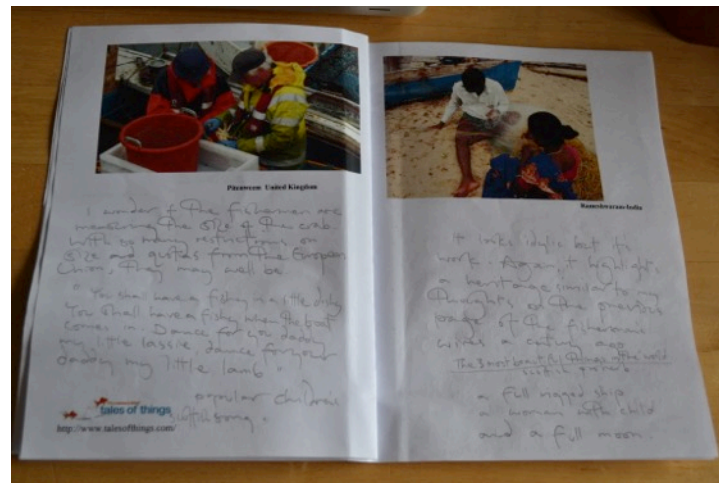 Pittenweem United Kingdom
I wonder if the fishermen are
measuring the size of the crab.
With so many restrictions on
size and quotas from the European
Union, they may well be.
" You shall have a fishy in a little dishy
You shall have a fishy when the boat
comes in. Dance for you daddy
my little lassie, dance for your
daddy my little lamb "
popular children's
song.
tales of things
http://www.talesofthings.com/
Rameshwaram-India
It looks idylic but it's
work. Again, it highlights
a heritage similar to my
thoughts on the previous
page of the fisherman's
wives a century ago
The 3 most beautiful things in the world
a full rigged ship
a woman with child
and a full moon.